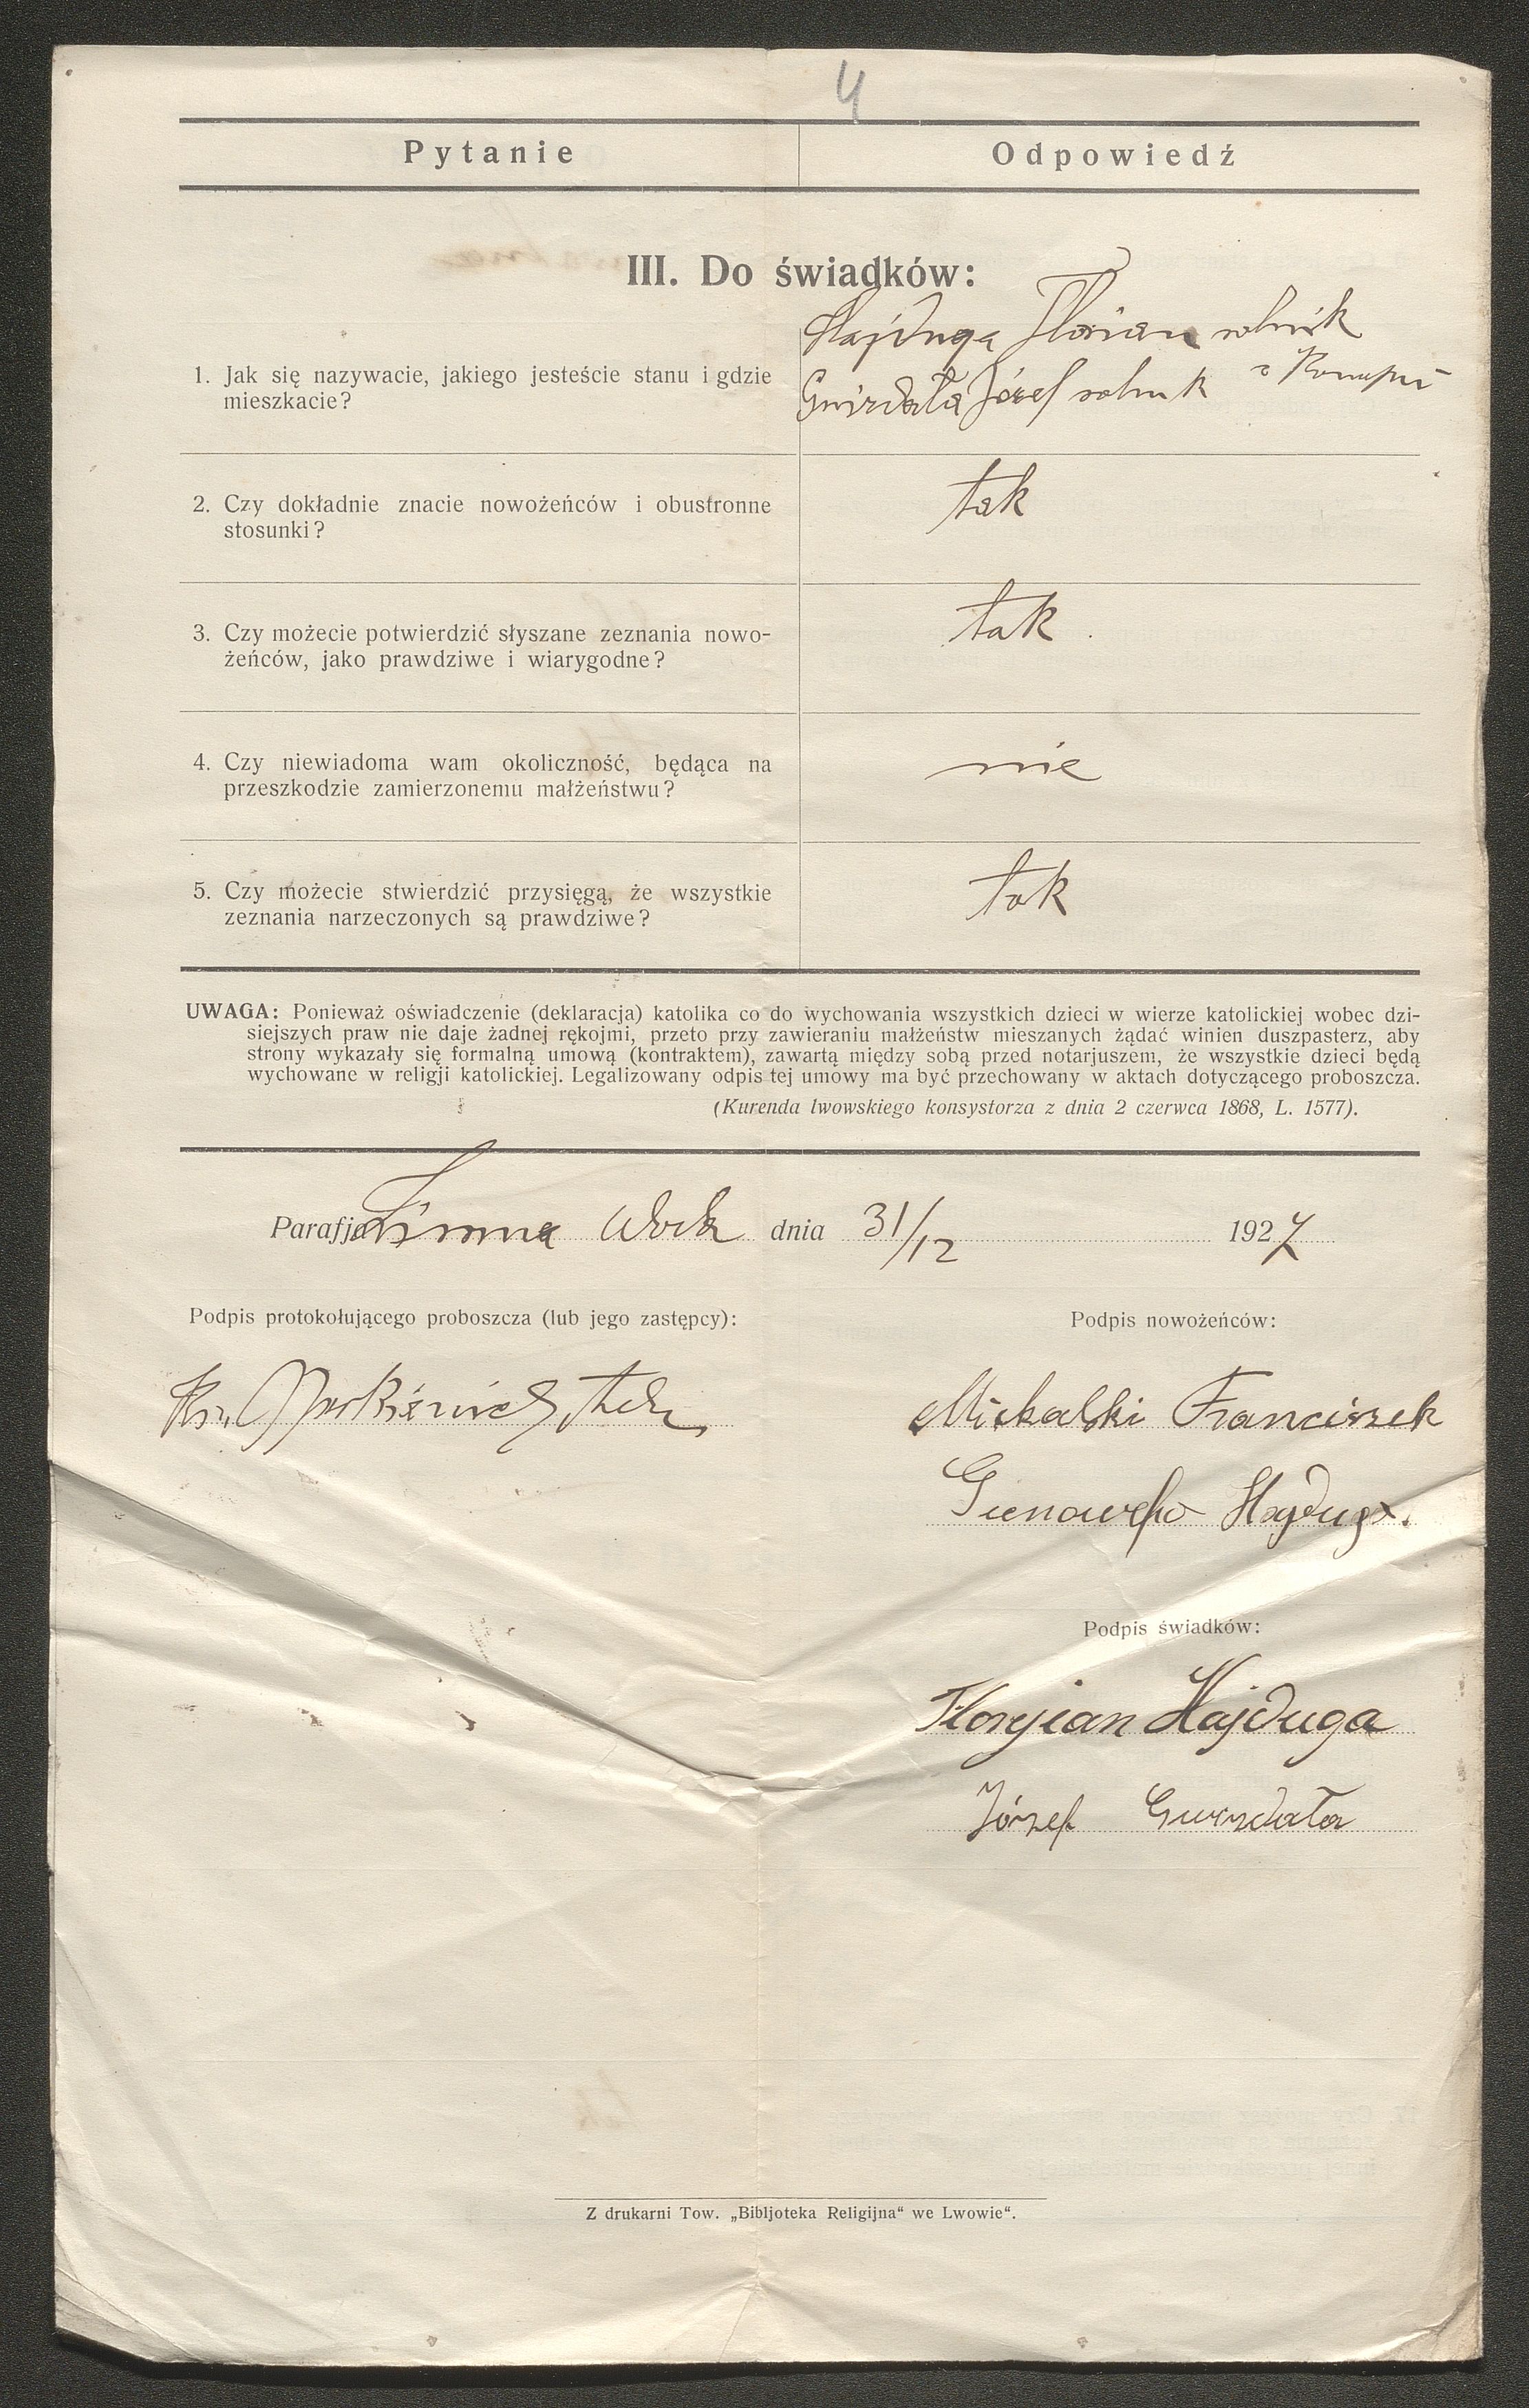 4
Pytanie
Odpowiedź
III. Do świadków:
1. Jak się nazywacie, jakiego jesteście stanu i gdzie
mieszkacie?
Hajduga Florian rolnik
Gwizdała Józef rolnik
2. Czy dokładnie znacie nowożeńców i obustronne
stosunki?
tak
3. Czy możecie potwierdzić słyszane zeznania nowo-
żeńców, jako prawdziwe i wiarygodne?
tak
4. Czy niewiadoma wam okoliczność, będąca na
przeszkodzie zamierzonemu małżeństwu?
nie
5. Czy możecie stwierdzić przysięgą, że wszystkie
zeznania narzeczonych są prawdziwe?
tak
UWAGA: Ponieważ oświadczenie (deklaracja) katolika co do wychowania wszystkich dzieci w wierze katolickiej wobec dzi-
siejszych praw nie daje żadnej rękojmi, przeto przy zawieraniu małżeństw mieszanych żądać winien duszpasterz, aby
strony wykazały się formalną umową (kontraktem), zawartą między sobą przed notarjuszem, że wszystkie dzieci będą
wychowane w religji katolickiej. Legalizowany odpis tej umowy ma być przechowany w aktach dotyczącego proboszcza.
(Kurenda lwowskiego konsystorza z dnia 2 czerwca 1868, L. 1577).
Parafja Zimna Woda dnia 31/12 1927
Podpis protokołującego proboszcza (lub jego zastępcy):
Podpis nowożeńców:
Ks.
Michalski Franciszek
Hajduga.
Podpis świadków:
Florjian Hajduga
Józef Gwizdała
Z drukarni Tow. „Bibljoteka Religijna“ we Lwowie“.